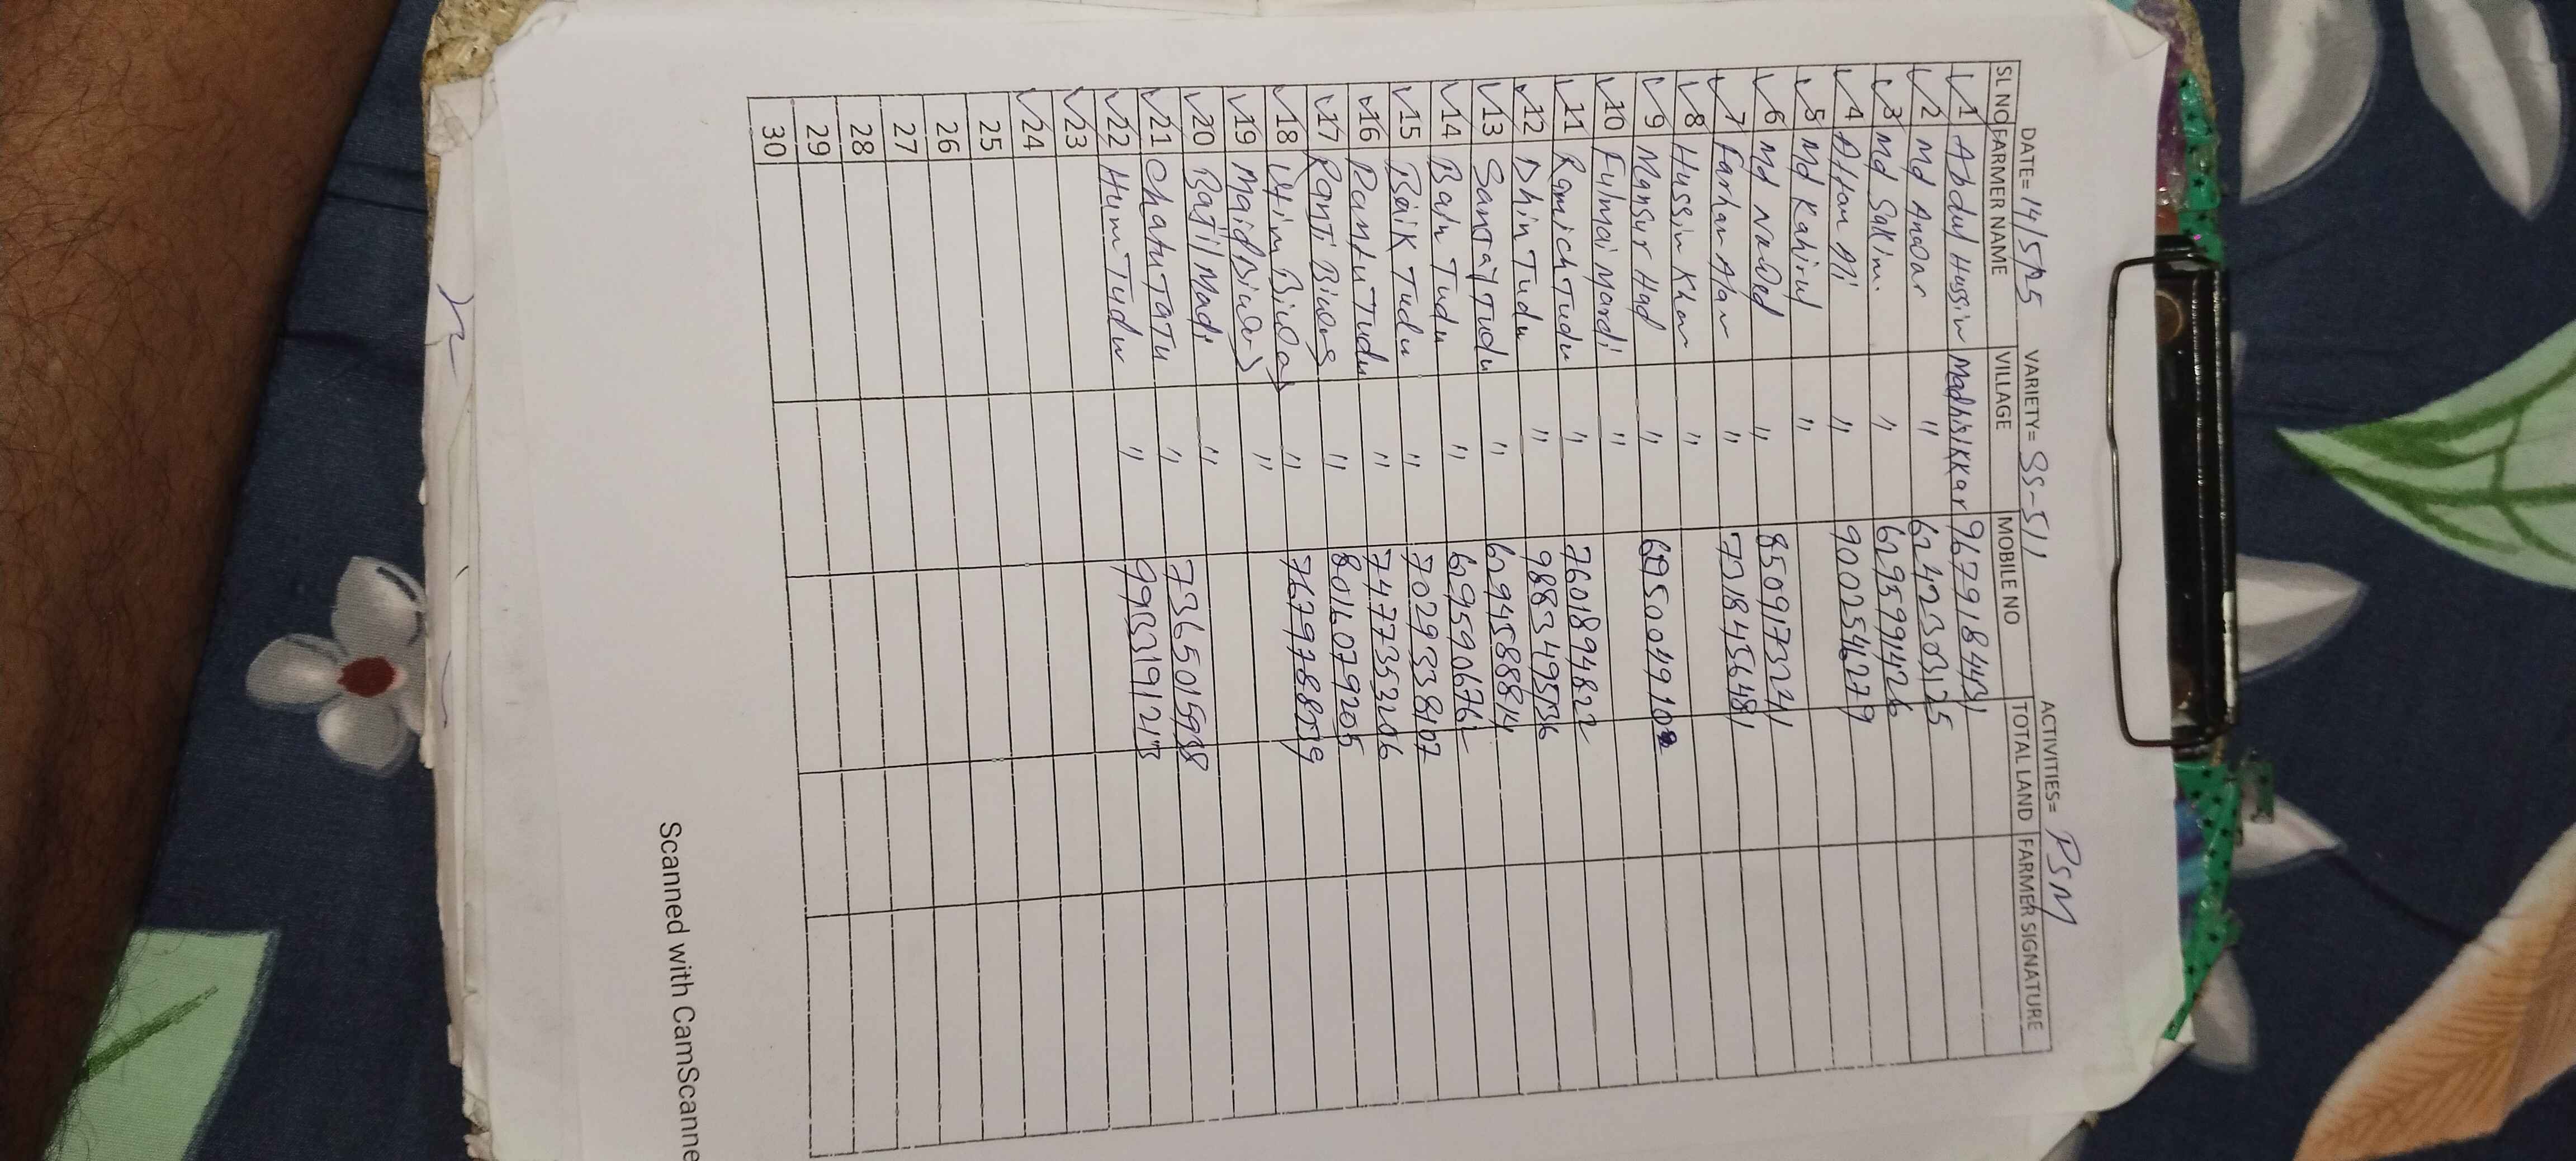 DATE= 14/5/25 VARIETY= SS-511 ACTIVITIES= PSM
SL NO FARMER NAME VILLAGE MOBILE NO TOTAL LAND FARMER SIGNATURE
1 Abdul Hussin Madhisikkar 9679184431
2 Md Ansar " 6242303125
3 Md Salim. " 6295991426
4 Altau Ali " 9002546279
5 Md Kahirul "
6 Md Navded " 8509173221
7 Farhan Alan " 7318456481
8 Hussin Khan "
9 Mansur Had "
10 Fulmai Mardi "
11 Ramich Tudu " 7601894822
12 Dhin Tudu " 9883495136
13 Santal Tudu " 6294588814
14 Bain Tudu " 6295906762
15 Baik Tudu " 7029338107
16 Rantu Tudu " 7477352206
17 Ranti Biwas " 8016079205
18 Utim Biwas "
19 Maid Biwas "
20 Bajil Madi "
21 Chahu Tatu " 7365015988
22 Hum Tudu "
23
24
25
26
27
28
29
30
Scanned with CamScanne